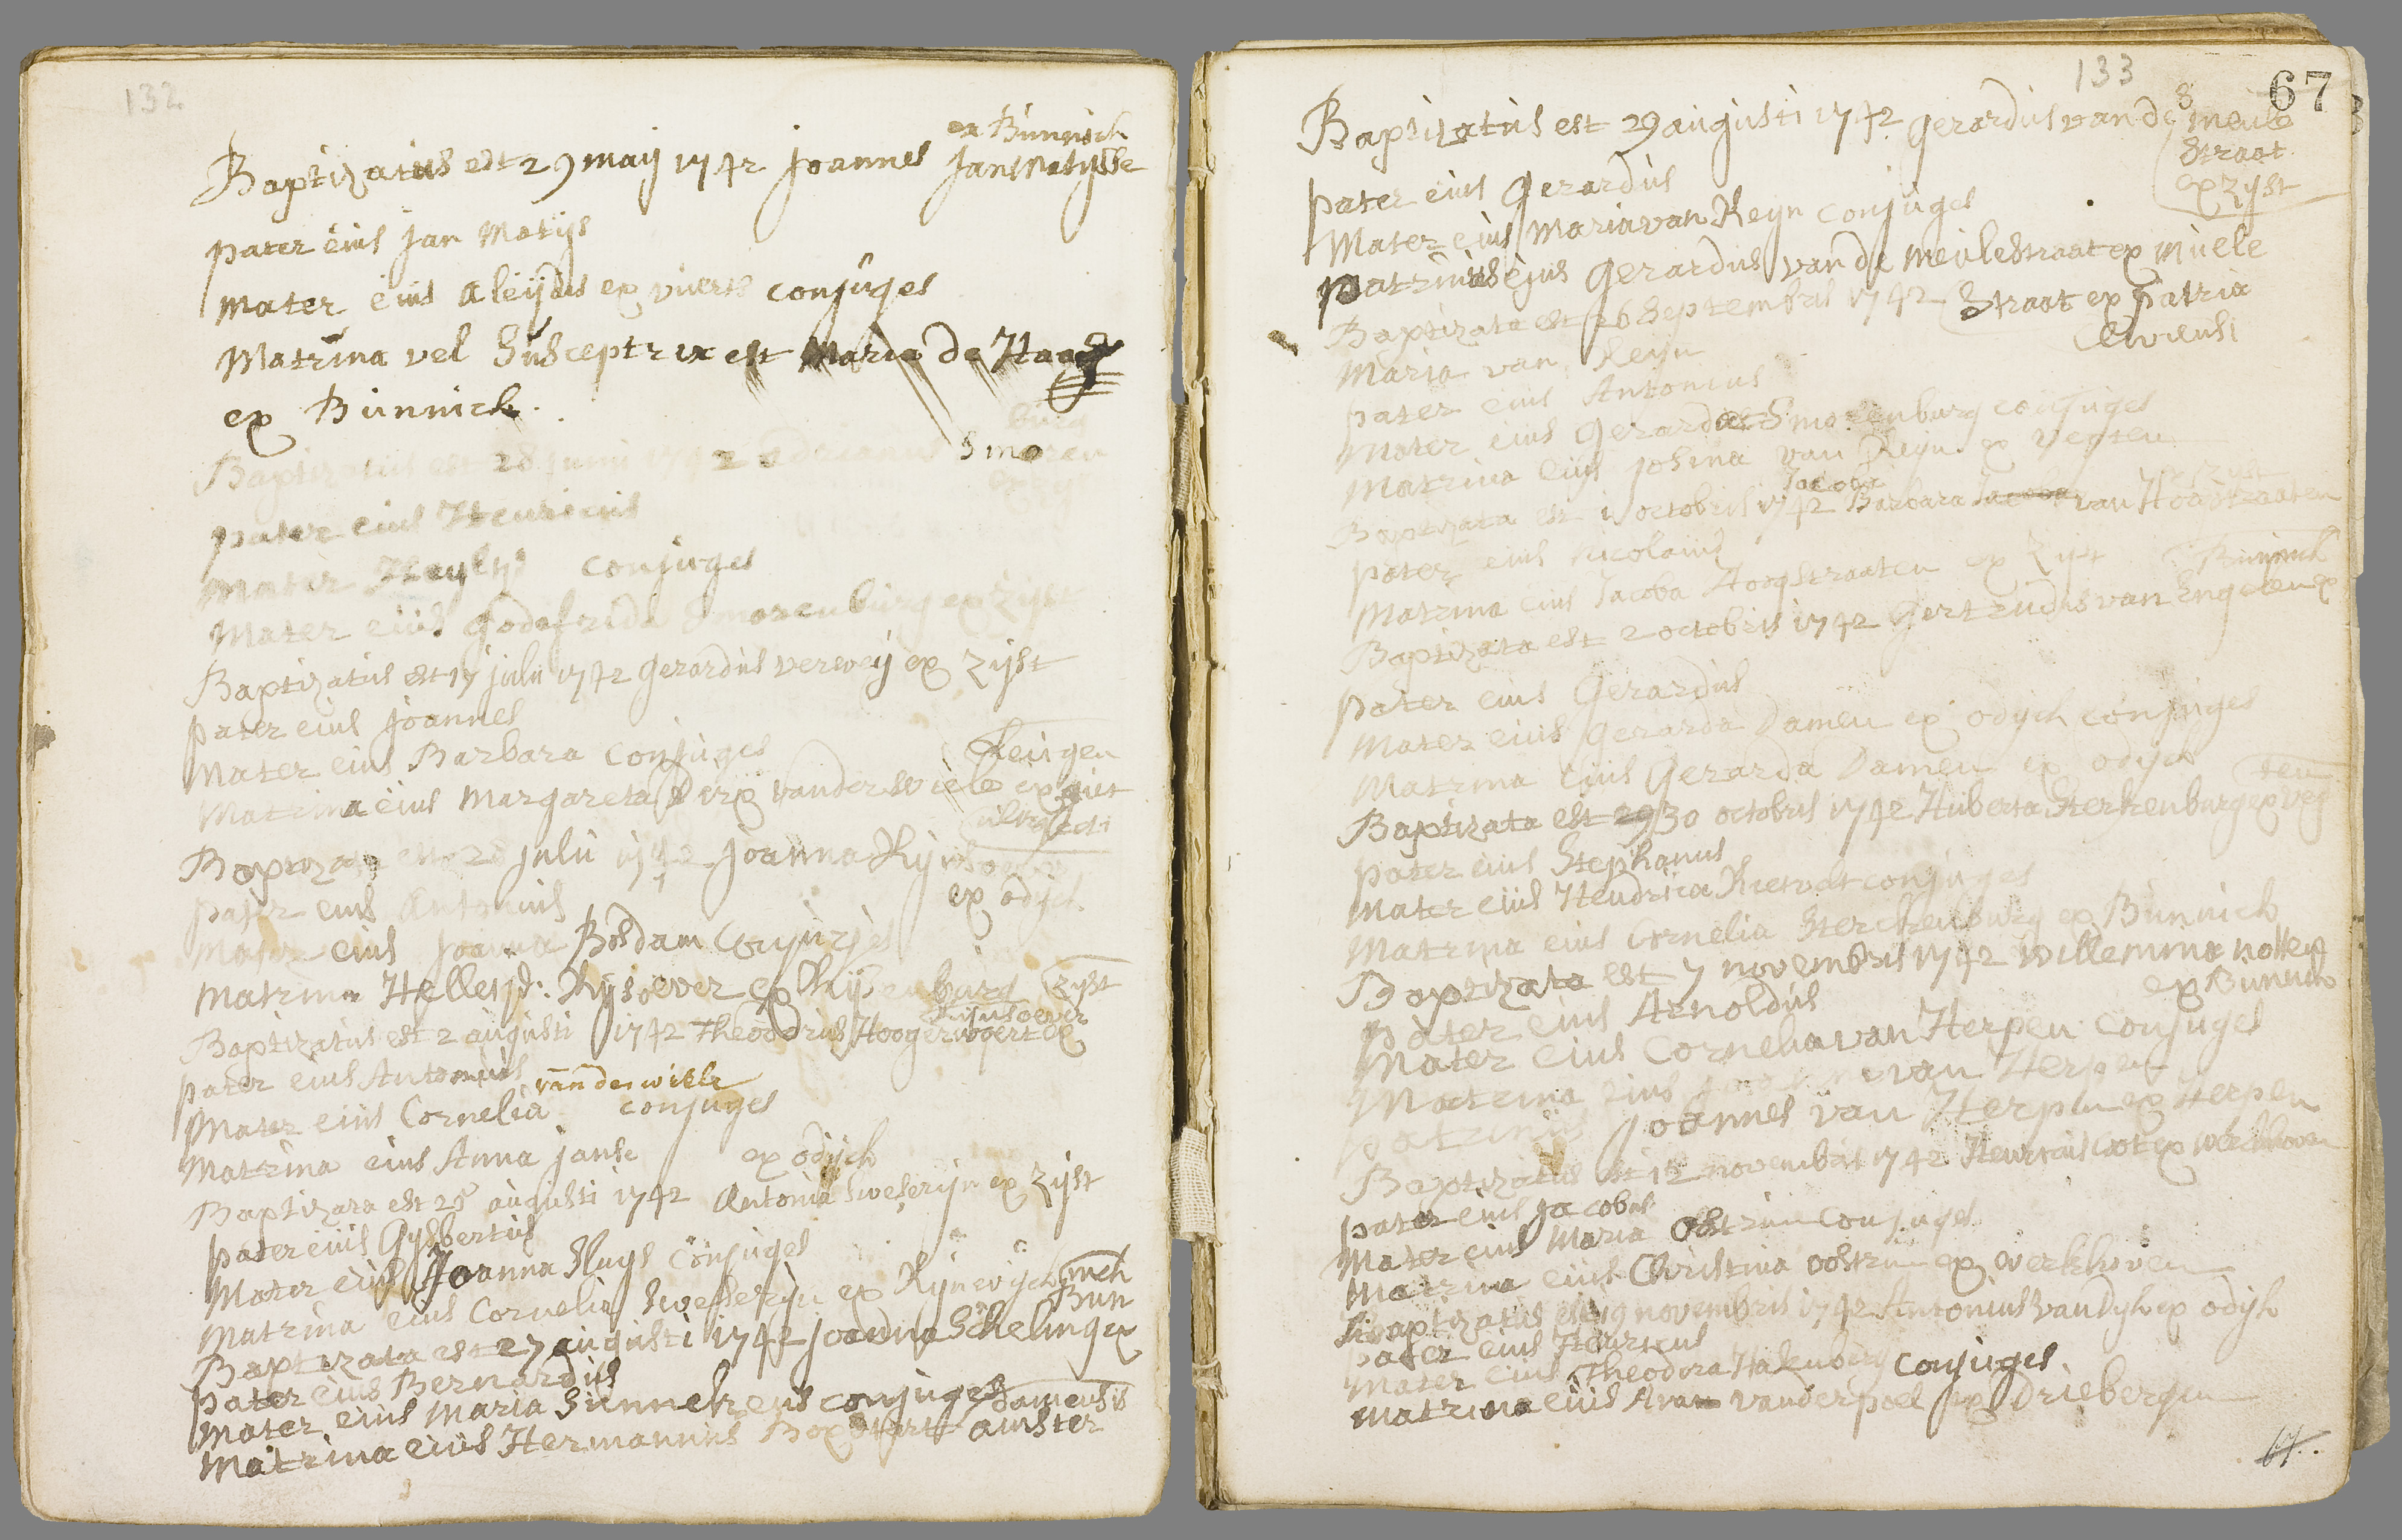 132
ex Bunnich
Baptizatus est 29 maij 1742 Joannes Jan Matysse
pater eius Jan Matijs
Mater eius Aleijdis ex viverts conjuges
Matrina vel Susceptrix est Maria de Haas
ex Bunnich.
burg
Baptizatus est 28 junii 1742 Adrianus Smoren
ex Zyst
pater eius Henricus
Mater Heyltje conjuges
Mater eius Godefrida Smorenburg ex Zijst
Baptizatus est 17 julii 1742 Gerardus verweij ex Zijst
pater eius Joannes
Mater eius Barbara conjuges
Reijgen
Matrina eius Margareta Dirx vander wiele ex
ultrajecti
Baptizata est 28 julii 1742 Joanna Rijnsoever
pater eius Antonius ex odijck
Mater eius Joanna Bosdam Conjuges
Matrina Helletje Rijsoever ex Rijsenburg Zyst
Baptizatus est 2 augusti 1742 Theodorus Hoogervogert ex
pater eius Antonius
van de wiele
Mater eius Cornelia conjuges
Matrina eius Anna janse ex odijck
Baptizata est 25 augusti 1742 Antonia Sweserijn ex Zijst
pater eius Gysbertus
Mater eius Joanna Sluys Conjuges
Matrina eius Cornelia Sweserijn ex Rijnwijck nich
Bun
Baptizata est 27 augusti 1742 Joanna Schelling ex
pater eius Bernardus
Mater eius Maria conjuges
damensis
Matrina eius Hermannus amster
133
67
8
Baptizatus est 29 augusti 1742 Gerardus van de meule
Straat
ex Zyst
pater eius Gerardus
Mater eius Maria van Reyn conjuges
patrinus ejus Gerardus van de Meulestraat ex Muele
Straat ex patria
Clivensi
Baptizata est 26 Septembris 1742
Maria van Reyn
pater eius Antonius
Mater eius Gerarda Smorenburg conjuges
Matrina eius Josina van Reyn ex Vegten
Jacoba
ex Zyst
Baptizata est 1 octobris 1742 Barbara Jacoba van Hoogstraaten
pater eius Nicolaus
Matrina eius Jacoba Hoogstraaten ex Zyst
Bunnich
Baptizata est 2 octobris 1742 Gertrudis van Engelen ex
pater eius Gerardus
Mater eius Gerarda Damen ex odijck conjuges
Matrina eius Gerarda Damen ex odijck
ten
Baptizata est 29 30 octobris 1742 Huberta Sterkenburg ex Veg
pater eius Stephanus
Mater eius Hendrica Rietvat conjuges
Matrina eius Cornelia Sterckenburg ex Bunnich
Baptizata est 7 novembris 1742 Willemina
ex Bunnich
pater eius Arnoldus
Mater eius Cornelia van Herpen conjuges
Matrina eius van Herpen
patrinus Joannes van Herpen ex Herpen
Baptizatus est 12 novembris 1742 Henricus ex Werckhoven
pater eius Jacobus
Mater eius Maria Oostrum conjuges
Matrina eius Christina oostrum ex werkhoven
Baptizatus est 19 novembris 1742 Antonius van Dyk ex odijk
pater eius Henricus
Mater eius Theodora Conjuges
Matrina eius vander poel ex Driebergen
67.